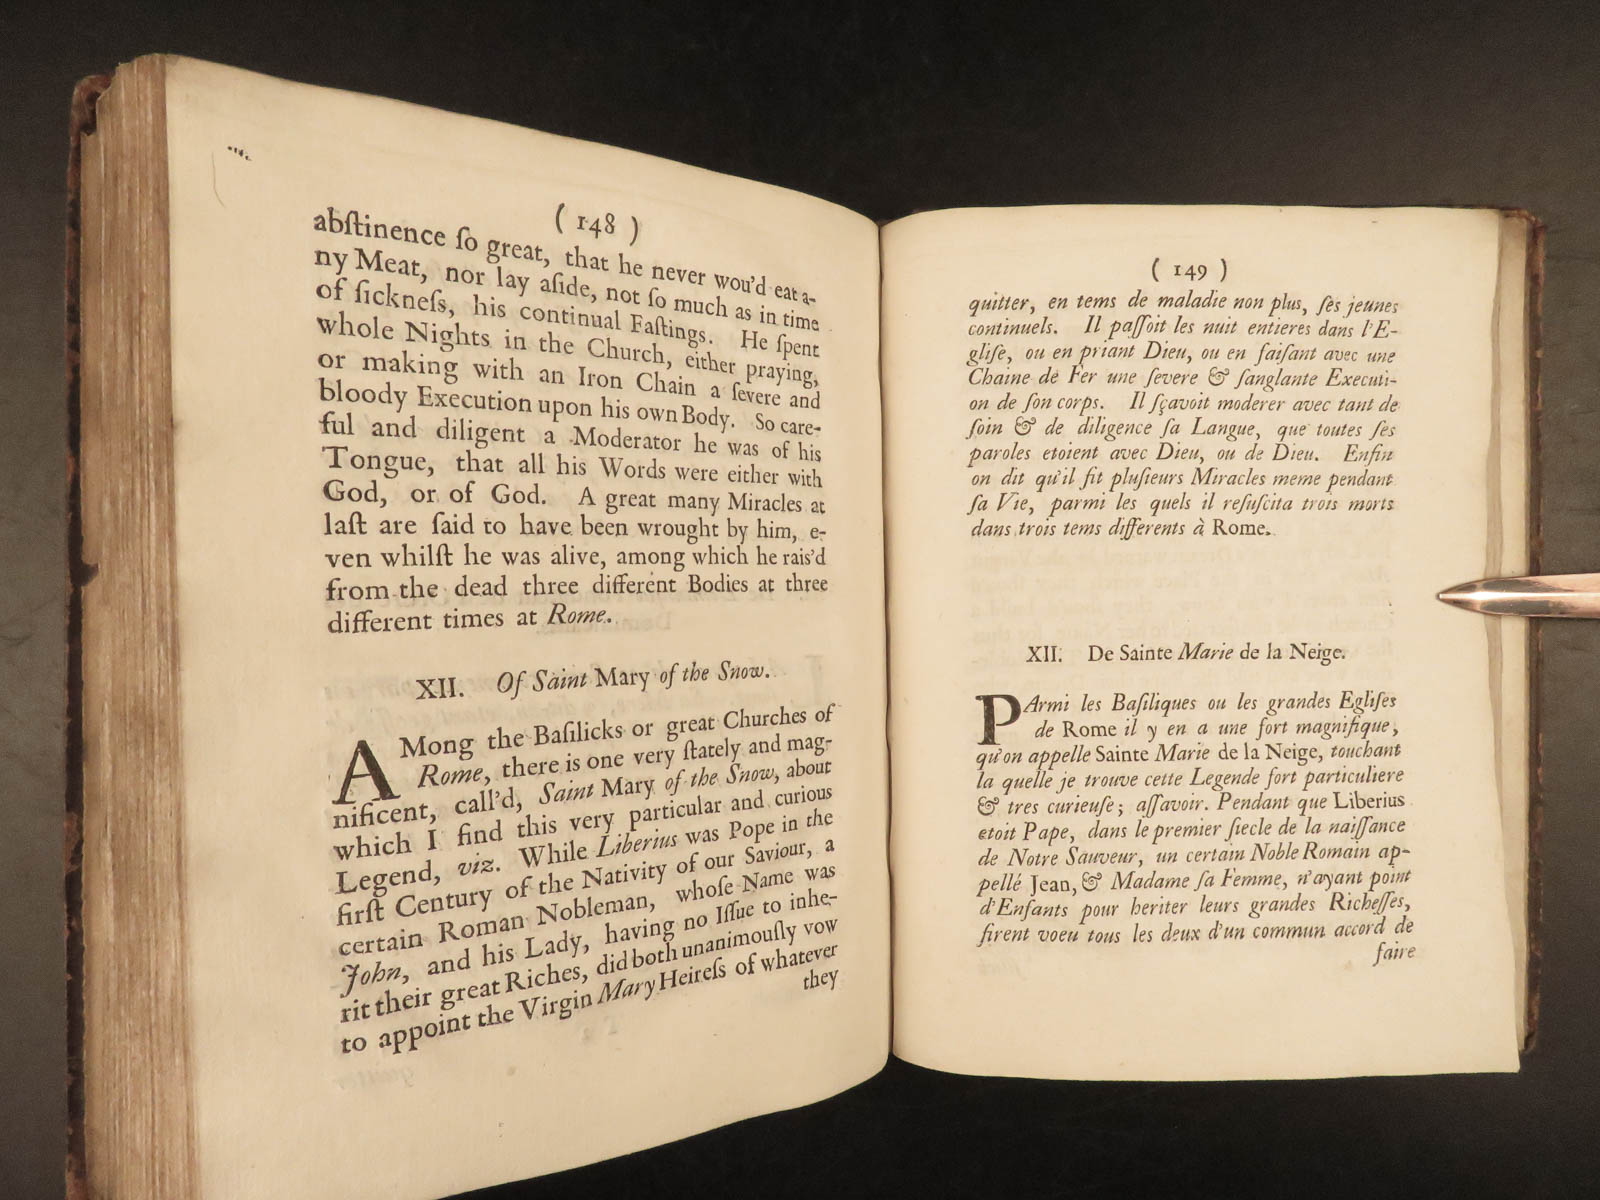 ( 148 )
abſtinence ſo great, that he never wou'd eat a-
ny Meat, nor lay aſide, not ſo much as in time
of ſickneſs, his continual Faſtings. He ſpent
whole Nights in the Church, either praying,
or making with an Iron Chain a ſevere and
bloody Execution upon his own Body. So care-
ful and diligent a Moderator he was of his
Tongue, that all his Words were either with
God, or of God. A great many Miracles at
laſt are ſaid to have been wrought by him, e-
ven whilſt he was alive, among which he rais'd
from the dead three different Bodies at three
different times at Rome.
XII. Of Saint Mary of the Snow.
AMong the Baſilicks or great Churches of
Rome, there is one very ſtately and mag-
nificent, call'd, Saint Mary of the Snow, about
which I find this very particular and curious
Legend, viz. While Liberius was Pope in the
firſt Century of the Nativity of our Saviour, a
certain Roman Nobleman, whoſe Name was
John, and his Lady, having no Iſſue to inhe-
rit their great Riches, did both unanimouſly vow
to appoint the Virgin Mary Heireſs of whatever
they
( 149 )
quitter, en tems de maladie non plus, ſes jeunes
continuels. Il paſſoit les nuit entieres dans l'E-
gliſe, ou en priant Dieu, ou en faiſant avec une
Chaine de Fer une ſevere & ſanglante Executi-
on de ſon corps. Il ſçavoit moderer avec tant de
ſoin & de diligence ſa Langue, que toutes ſes
paroles etoient avec Dieu, ou de Dieu. Enfin
on dit qu'il fit pluſieurs Miracles meme pendant
ſa Vie, parmi les quels il reſuſcita trois morts
dans trois tems differents à Rome.
XII. De Sainte Marie de la Neige.
PArmi les Baſiliques ou les grandes Egliſes
de Rome il y en a une fort magnifique,
qu'on appelle Sainte Marie de la Neige, touchant
la quelle je trouve cette Legende fort particuliere
& tres curieuſe; aſſavoir. Pendant que Liberius
etoit Pape, dans le premier ſiecle de la naiſſance
de Notre Sauveur, un certain Noble Romain ap-
pellé Jean, & Madame ſa Femme, n'ayant point
d'Enfants pour heriter leurs grandes Richeſſes,
firent voeu tous les deux d'un commun accord de
faire